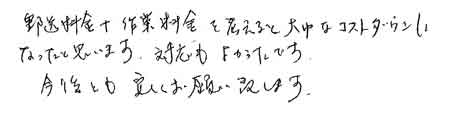 郵送料金+作業料金を考えると大巾なコストダウンに
なったと思います。対応もよかったです。
今後とも宜しくお願い致します。